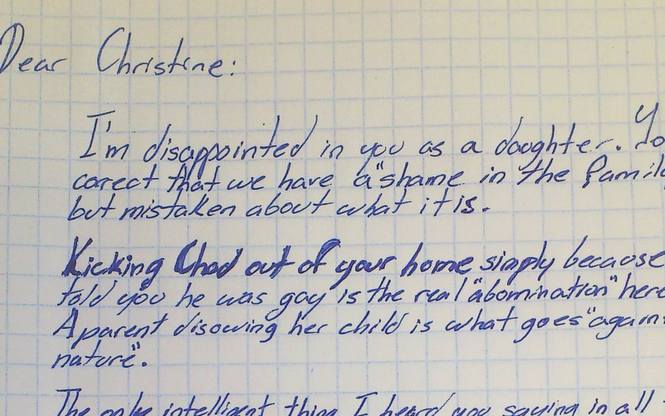 Dear Christine:
I'm disappointed in you as a daughter.
corect that we have a "shame in the
but mistaken about what it is.
Kicking Chad out of your home simply because
told you he was gay is the real "abomination" here
A parent disowing her child is what goes "again
nature".
The only intelligent thing I heard you saying in all